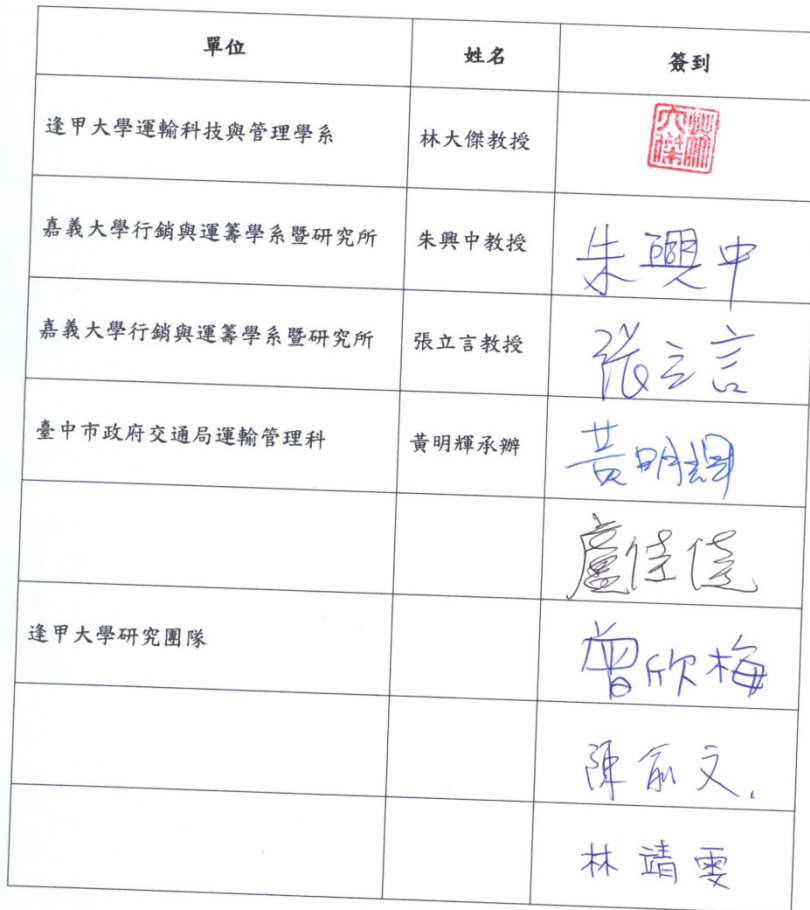 單位 姓名 簽到
逢甲大學運輸科技與管理學系 林大傑教授 林大傑
嘉義大學行銷與運籌學系暨研究所 朱興中教授 朱興中
嘉義大學行銷與運籌學系暨研究所 張立言教授 張立言
臺中市政府交通局運輸管理科 黃明輝承辦 黃明輝
盧佳佳
逢甲大學研究團隊 曾欣梅
陳俞文
林靖雯